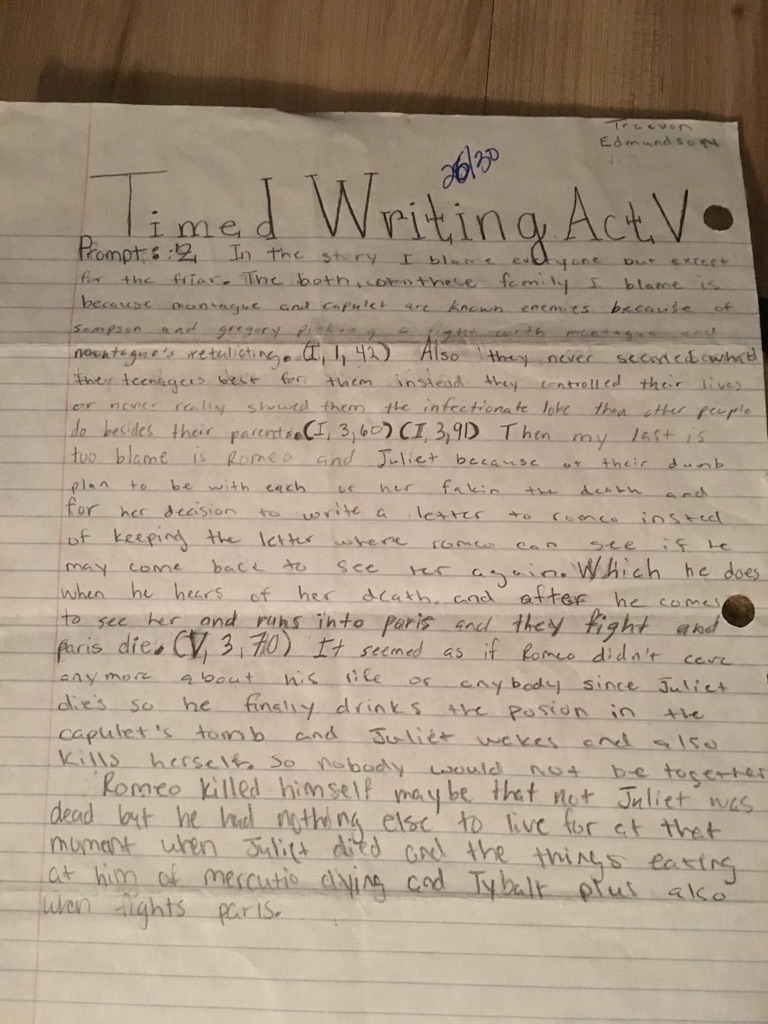 Edmundson
26/30
Timed Writing Act V
Prompt: 2, In the story I blame everyone but except
for the friar. The both these family I blame is
because montague and capulet are known enemies because of
sampson and gregory picking a fight with montague and
montague's retaliating. (I, 1, 42) Also they never what
they teenagers best for them instead they controlled their lives
or never really showed them the infectionate love than other people
do besides their parents. (I, 3, 60) (I, 3, 91) Then my last is
too blame is Romeo and Juliet because of their dumb
plan to be with each of her fakin the death and
for her decision to write a letter to romeo insted
of keeping the letter where romeo can see if he
may come back to see her again. Which he does
when he hears of her death, and after he comes
to see her and runs into paris and they fight and
paris die. (V, 3, 70) It seemed as if Romeo didn't care
anymore about his life or anybody since Juliet
dies so he finally drinks the posion in the
capulet's tomb and Juliet wakes and also
kills herself. So nobody would not be together
Romeo killed himself maybe that not Juliet was
dead but he had nothing else to live for at that
moment when Juliet died and the things eating
at him of mercutio dying and Tybalt plus also
when fights paris.